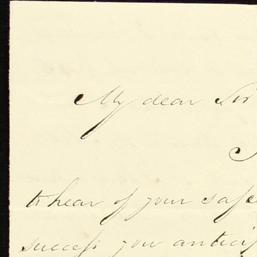 My dear Sir
to hear of your safe
success you antici